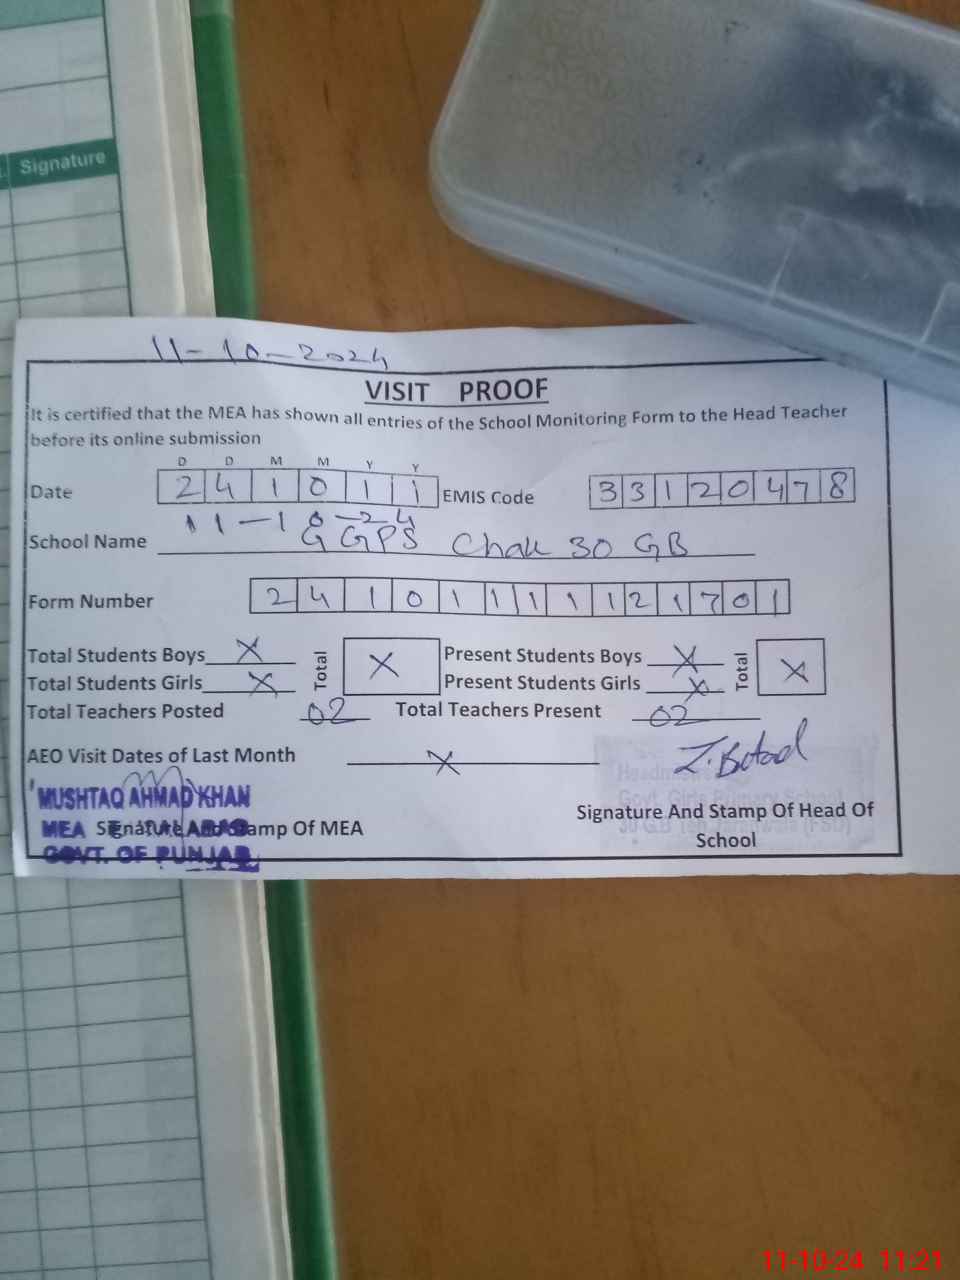 Signature
11-10-2024
VISIT PROOF
It is certified that the MEA has shown all entries of the School Monitoring Form to the Head Teacher
before its online submission
D D M M Y Y
Date 2 4 1 0 1 1 EMIS Code 3 3 1 2 0 4 7 8
11-10-24
School Name G GPS Chak 30 GB
Form Number 2 4 1 0 1 1 1 1 1 2 1 7 0 1
Total Students Boys X Total X Present Students Boys X Total X
Total Students Girls X Present Students Girls X
Total Teachers Posted 02 Total Teachers Present 02
AEO Visit Dates of Last Month X
MUSHTAQ AHMAD KHAN
MEA
Signature And Stamp Of MEA
GOVT. OF PUNJAB
Govt. Girls Primary School
30 GB
Signature And Stamp Of Head Of
School
11-10-24 11:21